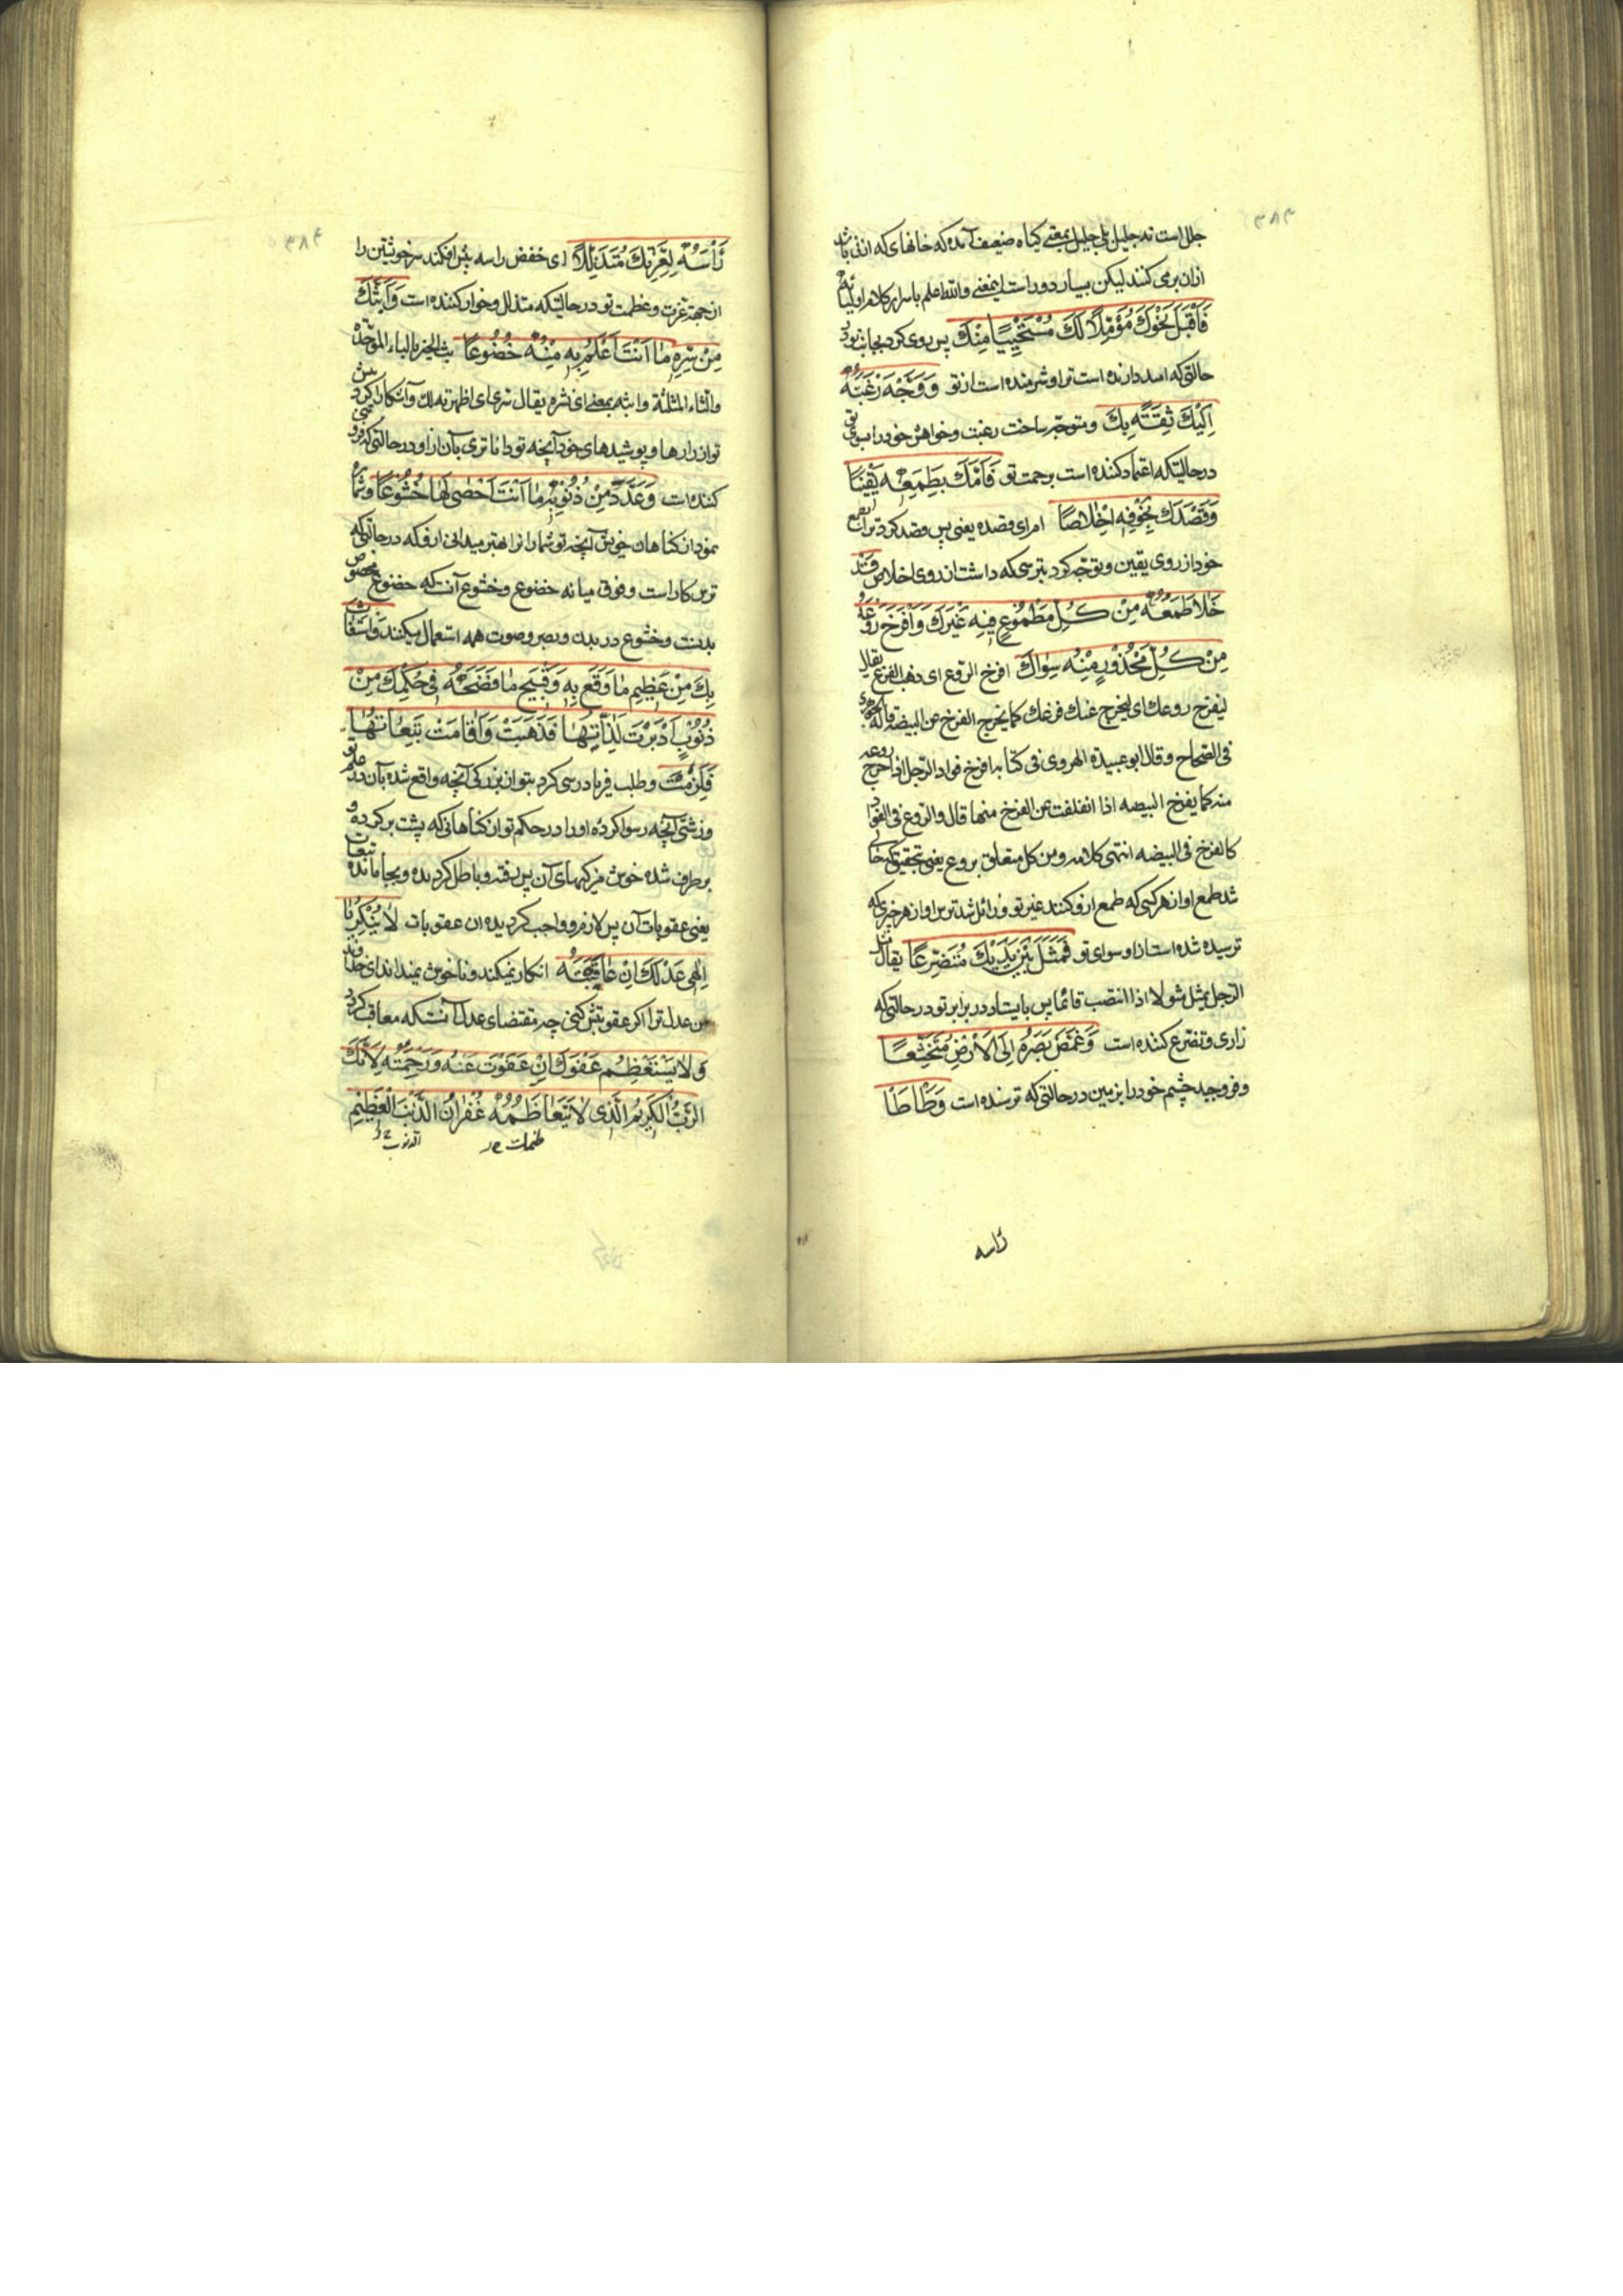 ۳۸۳
جلل است نه جلیل بلی جلیل بمعنی کیاه ضعیف آمده که خانهای که از نی باشد
ازان برمی کنند لیکن بسیار دور است اینمعنی والله اعلم باسرار کلام اولیائه
فَاَقْبَلَ نَحْوَكَ مُؤَمِّلًا لَكَ مُسْتَحْيِيًا مِنْكَ پس روی کرد بجانب تو در
حالتی که امید دارنده است ترا و شرمنده است از تو وَوَجَّهَ رَغْبَتَهُ
اِلَيْكَ ثِقَةً بِكَ و متوجه ساخت رغبت و خواهش خود را بسوی تو
درحالتیکه اعتماد کننده است برحمت تو فَاَمَّكَ بِطَمَعِهِ يَقِينًا
وَقَصَدَكَ بِخَوْفِهِ اِخْلَاصًا ام ای قصده یعنی پس قصد کرد ترا بطمع
خود از روی یقین و توجه کرد بترسی که داشت از روی اخلاص قَدْ
خَلَا طَمَعُهُ مِنْ كُلِّ مَطْمُوعٍ فِيهِ غَيْرَكَ وَاَفْرَخَ رَوْعُهُ
مِنْ كُلِّ مَحْذُورٍ مِنْهُ سِوَاكَ افرخ الروع ای ذهب الفزع یقال
لیفرخ روعك ای لیخرج عنك فزعك كما یخرج الفرخ عن البیضه قاله الجوهری
فی الصحاح و قال ابو عبیدة الهروی فی کتابه افرخ فواد الرجل اذا خرج روعه
منه كما یفرخ البیضه اذا انفلقت عن الفرخ منها قال والروع فی الفواد
کالفرخ فی البیضه انتهی کلامه و من کل متعلق بروع یعنی بتحقیق که خالی
شد طمع او از هر کسی که طمع ازو کنند غیر تو و زائل شد ترس او از هر چیزی که
ترسیده شده است ازو سوای تو فَمَثَلَ بَيْنَ يَدَيْكَ مُتَضَرِّعًا یقال مثل
الرجل یمثل مثولا اذا انتصب قائما پس بایستاد در برابر تو در حالتی که
زاری و تضرع کننده است وَغَمَّضَ بَصَرَهُ اِلَى الْاَرْضِ مُتَخَشِّعًا
و فروچید چشم خود را بزمین در حالتی که ترسنده است وَطَأْطَأَ
رأسه
۳۸۴
رَأْسَهُ لِعِزَّتِكَ مُتَذَلِّلًا ای خفض راسه پیش افکند سر خویشتن را
از جهة عزت و عظمت تو در حالتیکه متذلل و خوار کننده است وَاَبَثَّكَ
مِنْ سِرِّهِ مَا اَنْتَ اَعْلَمُ بِهِ مِنْهُ خُضُوعًا بث الخبر بالباء الموحدة
والثاء المثلثة و ابثه بمعنی ای نشره یقال سری ای اظهرته لك و آشکارا کرد پیش
تو از رازها و پوشیدهای خود آنچه تو داناتری بآن ازاو در حالتی که فروتنی
کننده است وَعَدَّدَ مِنْ ذُنُوبِهِ مَا اَنْتَ اَحْصَى لَهَا خُشُوعًا و شماره
نمود از کناهان خویش آنچه تو شمار انرا بهتر میدانی ازو که در حالتی که
ترس کار است و فرق میانه خضوع و خشوع آنست که خضوع مخصوص
بدنست و خشوع در بدن و بصر و صوت همه استعمال میکنند وَاسْتَغَاثَ
بِكَ مِنْ عَظِيمِ مَا وَقَعَ بِهِ وَقَبِيحِ مَا فَضَحَهُ فِي حُكْمِكَ مِنْ
ذُنُوبٍ اَدْبَرَتْ لَذَّاتُهَا فَذَهَبَتْ وَاَقَامَتْ تَبِعَاتُهَا
فَلَزِمَتْ و طلب فریادرسی کرد بتو از بزرکی آنچه واقع شده بآن در علم تو
و زشتی آنچه رسوا کرده او را در حکم تو از کناهانی که پشت بر کرده و
برطرف شده خوش مزکیهای آن پس رفته و باطل کردیده و بجا مانده تبعات
یعنی عقوبات آن پس لازم و واجب کردیده ان عقوبات لَا يُنْكِرُ يَا
اِلٰهِي عَدْلَكَ اِنْ عَاقَبْتَهُ انکار نمیکند و ناخوش نمیداند ای خداوند
من عدل ترا اکر عقوبتش کنی چه مقتضای عدل آنستکه معاقب کردد
وَلَا يَسْتَعْظِمُ عَفْوَكَ اِنْ عَفَوْتَ عَنْهُ وَرَحِمْتَهُ لِاَنَّكَ
الرَّبُّ الْكَرِيمُ الَّذِي لَا يَتَعَاظَمُهُ غُفْرَانُ الذَّنْبِ الْعَظِيمِ
الذنوب